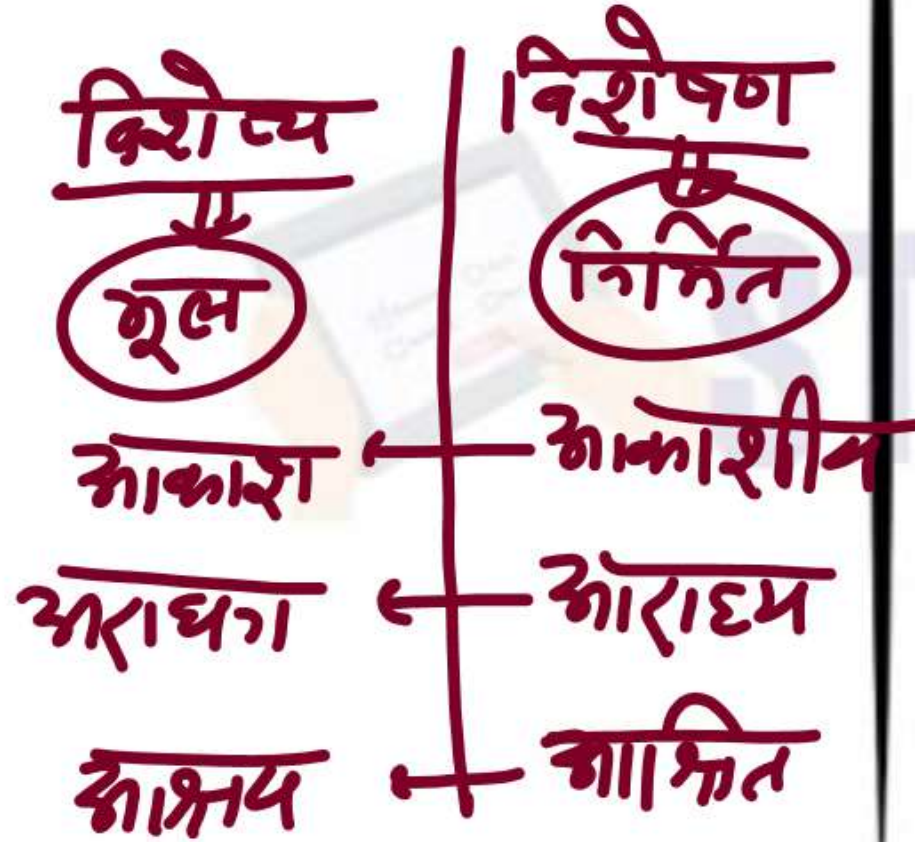 विशेष्य विशेषण
मूल निर्मित
आकाश आकाशीय
अराधना आराध्य
आश्रय आश्रित